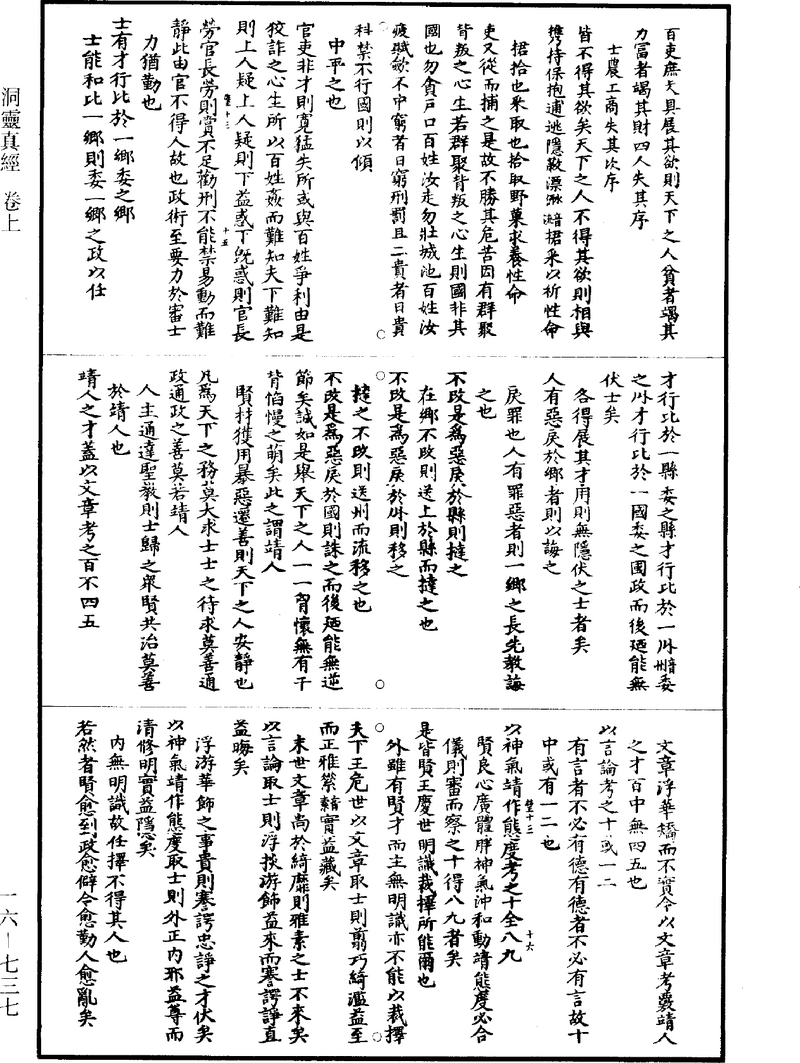 洞靈真經 卷上
一六—七三七
百吏庶夫具展其欲則天下之人貧者竭其
力富者竭其財四人失其序
士農工商失其次序
皆不得其欲矣天下之人不得其欲則相與
攜持保抱逋逃隱蔽漂流捃采以祈性命
捃拾也采取也拾取野菓求養性命
吏又從而捕之是故不勝其危苦因有群聚
背叛之心生若群聚背叛之心生則國非其
國也勿貪戶口百姓汝走勿壯城池百姓汝
疲賦斂不中窮者日窮刑罰且二貴者日貴
科禁不行國則以傾
中平之也
官吏非才則寬猛失所或與百姓爭利由是
狡詐之心生所以百姓姦而難知夫下難知
則上人疑上人疑則下益惑下既惑則官長
勞官長勞則賞不足勸刑不能禁易動而難
靜此由官不得人故也政術至要力於審士
力猶勤也
士有才行比於一鄉委之鄉
士能和比一鄉則委一鄉之政以任
才行比於一縣委之縣才行比於一州委
之州才行比於一國委之國政而後迺能無
伏士矣
各得展其才用則無隱伏之士者矣
人有惡戾於鄉者則以誨之
戾罪也人有罪惡者則一鄉之長先教誨
之也
不改是爲惡戾於縣則撻之
在鄉不改則送上於縣而撻之也
不改是爲惡戾於州則移之
撻之不改則送州而流移之也
不改是爲惡戾於國則誅之而後迺能無逆
節矣誠如是舉天下之人一一胷懷無有干
背慆慢之萌矣此之謂靖人
賢材獲用暴惡遷善則天下之人安靜也
凡爲天下之務莫大求士士之待求莫善通
政通政之善莫若靖人
人主通達聖教則士歸之衆賢共治莫善
於靖人也
靖人之才蓋以文章考之百不四五
文章浮華矯而不實令以文章考覈靖人
之才百中無四五也
以言論考之十或一二
有言者不必有德有德者不必有言故十
中或有一二也
以神氣靖作態度考之十全八九
賢良心廣體胖神氣沖和動靖態度必合
儀則審而察之十得八九者矣
是皆賢王慶世明識裁擇所能爾也
外雖有賢才而主無明識亦不能以裁擇
夫下王危世以文章取士則翦巧綺濫益至
而正雅縈藉實益藏矣
末世文章尚於綺靡則雅素之士不來矣
以言論取士則浮掞游飾益來而謇諤諍直
益晦矣
浮游華飾之事貴則謇諤忠諍之才伏矣
以神氣靖作態度取士則外正內邪益尊而
清修明實益隱矣
內無明識故任擇不得其人也
若然者賢愈到政愈僻令愈勤人愈亂矣